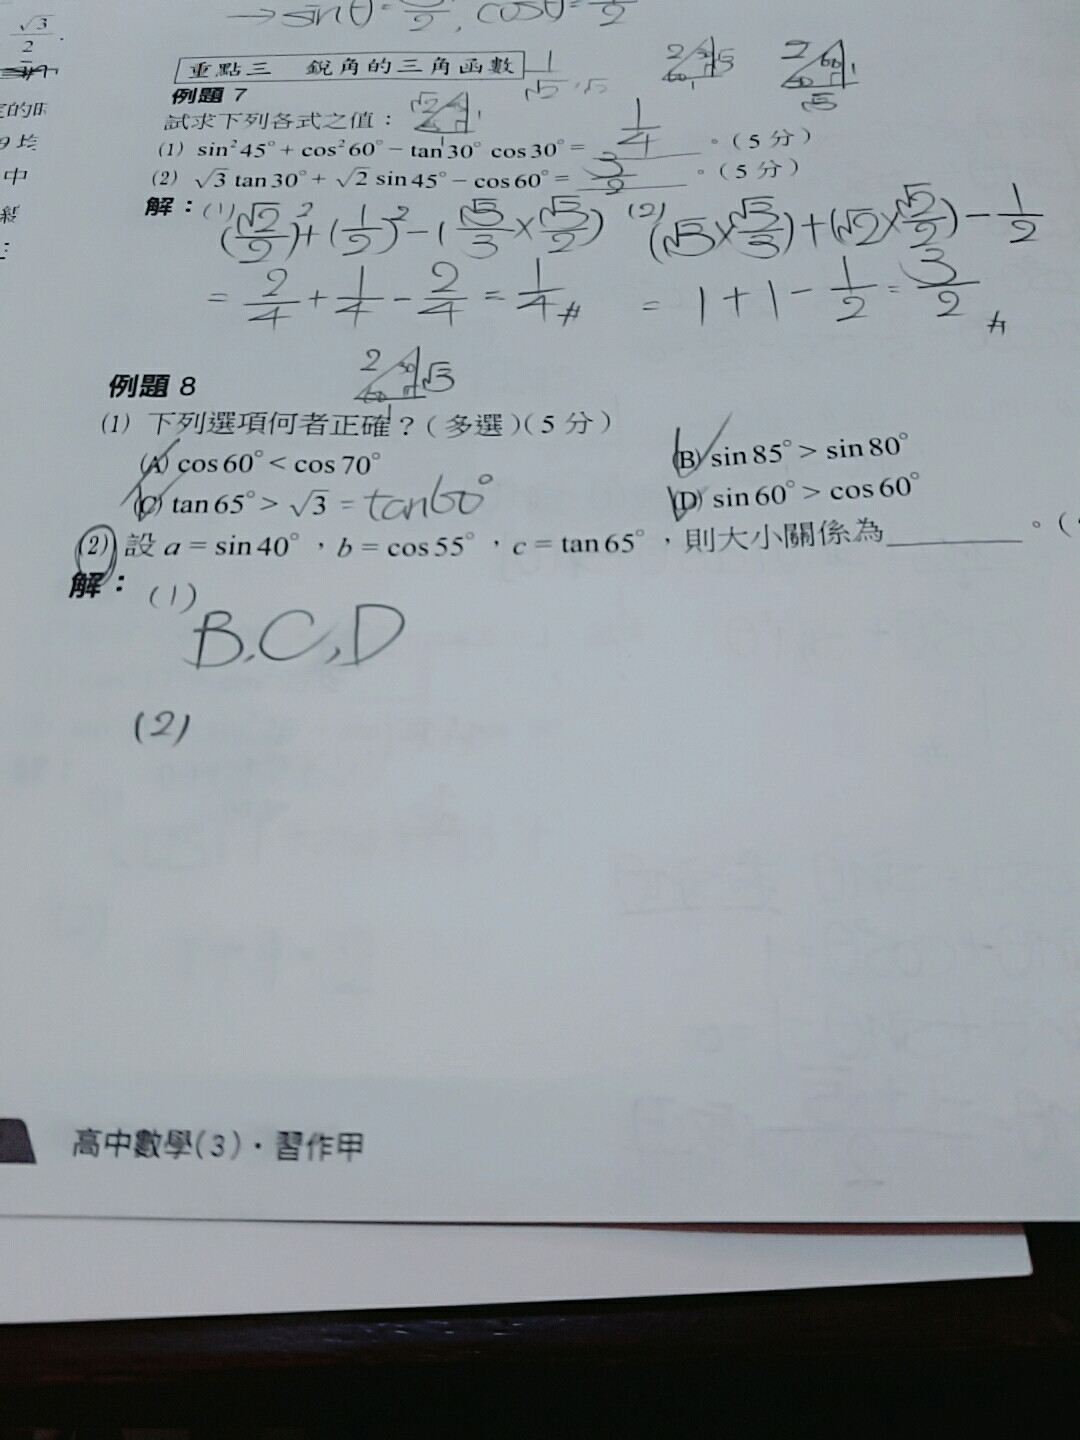 → sinθ=
2, cosθ= 2
√3
2 .
重點三 銳角的三角函數
例題 7
試求下列各式之值：
(1) sin²45°+ cos²60°− tan30° cos30°= 1/4 。（5 分）
(2) √3 tan30°+ √2 sin45°− cos60°= 3/2 。（5 分）
解：(1) (√2/2)²+(1/2)²−(√3/3×√3/2) (2) (√3×√3/3)+(√2×√2/2)−1/2
= 2/4 + 1/4 − 2/4 = 1/4 # = 1+1−1/2 = 3/2 #
例題 8
2 30 √3
60 1
(1) 下列選項何者正確？（多選）（5 分）
(A) cos60°< cos70° (B) sin85°> sin80°
(C) tan65°> √3 = tan60° (D) sin60°> cos60°
(2) 設 a = sin40°，b = cos55°，c = tan65°，則大小關係為＿＿＿＿。（
解：(1)
B,C,D
(2)
高中數學(3)．習作甲